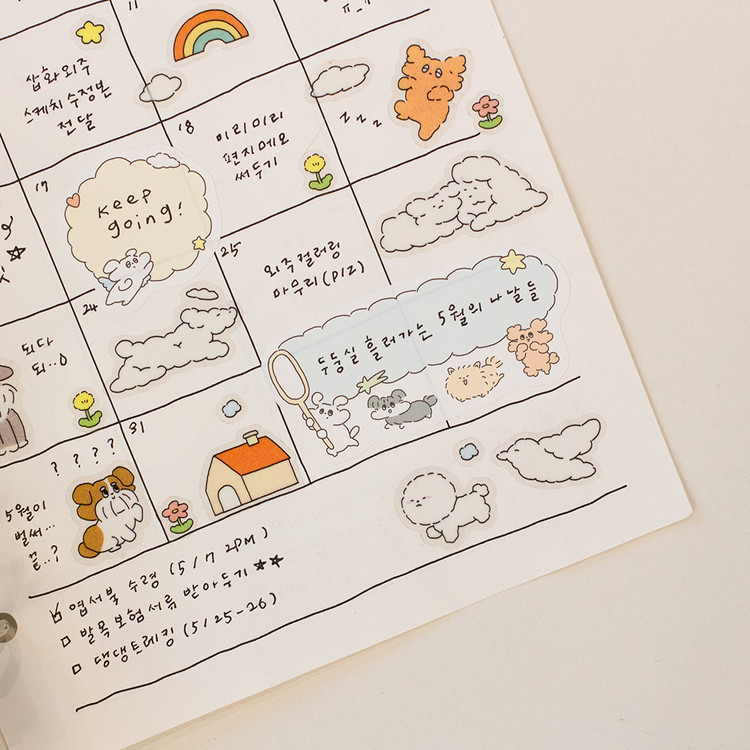 11
삽화 외주
스케치 수정본
전달
18
미리미리
편지 메모
써두기
z z z
17
KEEP
going!
25
외주 컬러링
마무리 (P12)
24
두둥실 흘러가는 5월의 나날들
되다
되..0
31
? ? ? ?
5월이
벌써...
끝..?
엽서북 수령 (5/7 2PM)
발목보험서류 받아두기 ★★
댕댕트레킹 (5/25-26)